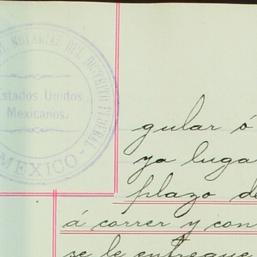 NOTARIAS DEL DISTRITO FEDERAL
Estados Unidos
Mexicanos.
MEXICO
gular ó
ya luga
plazo de
á correr y con
se le entregue